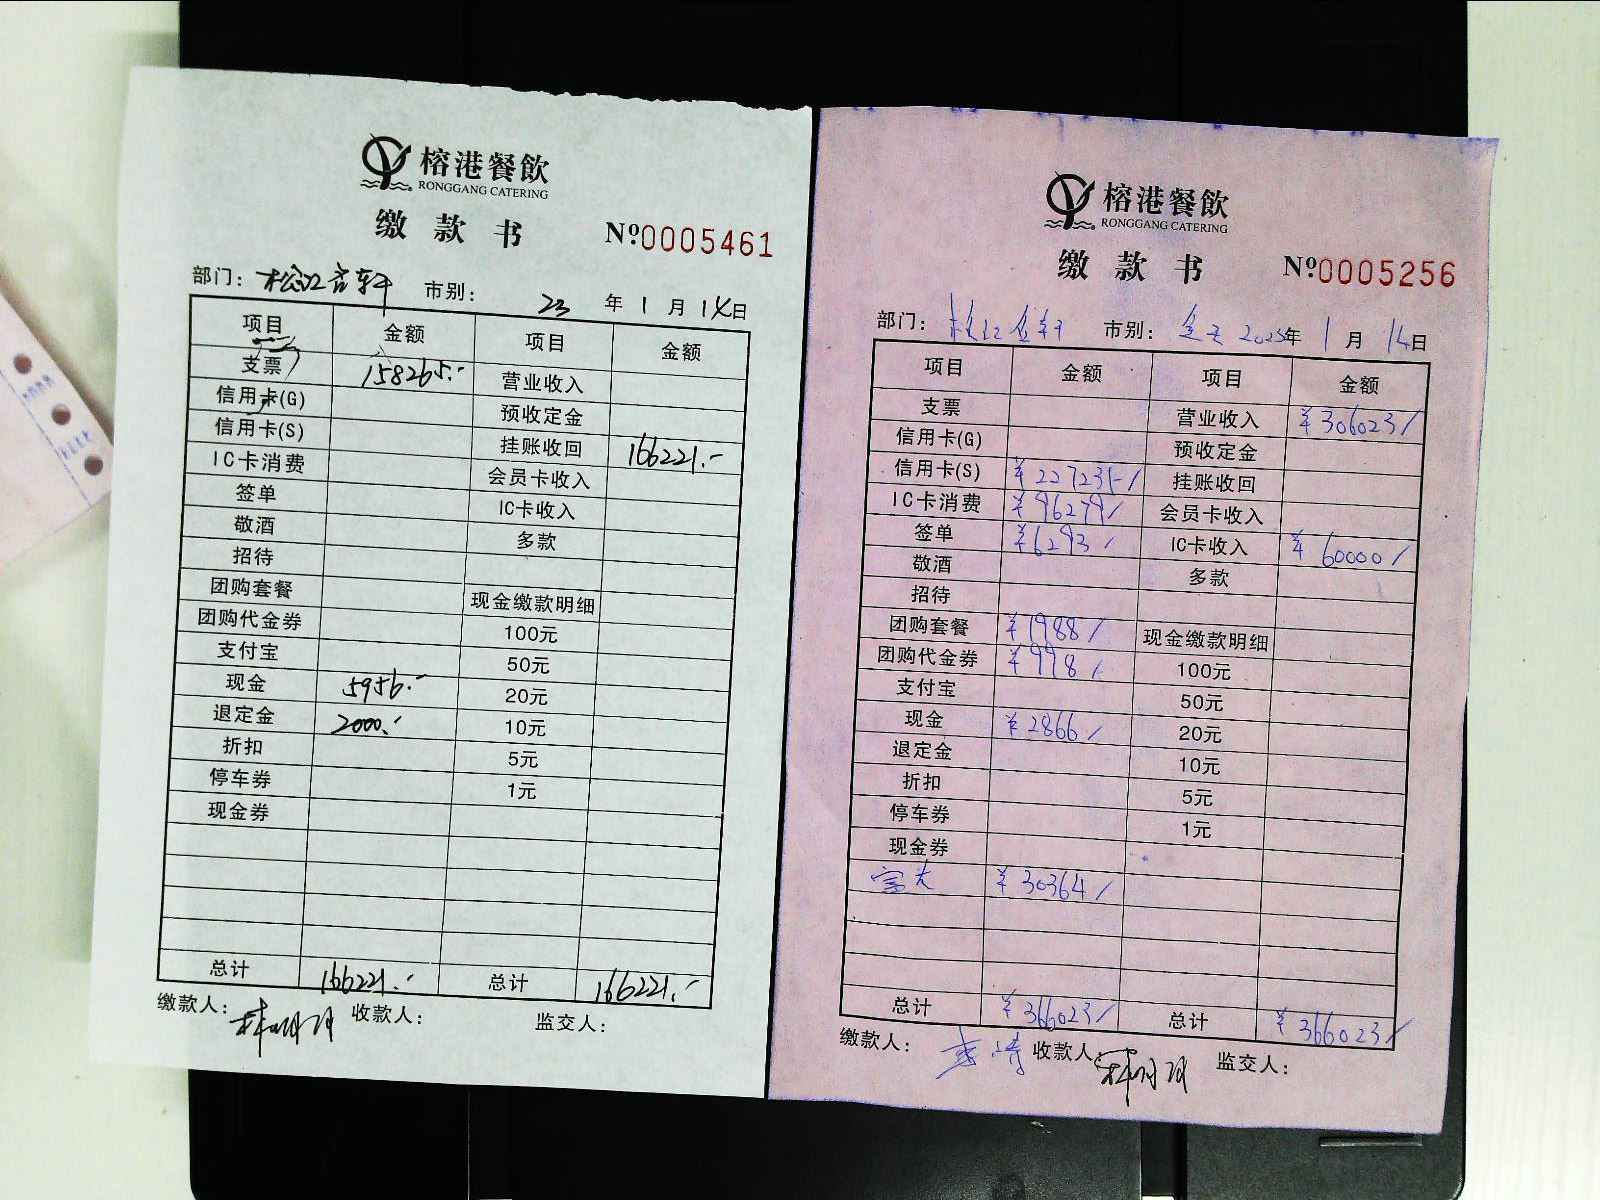 榕港餐飲
RONGGANG CATERING
缴款书 Nº0005461
部门: 市别: 23年1月14日
项目 金额 项目 金额
支票 158265.- 营业收入
信用卡(G) 预收定金
信用卡(S) 挂账收回 166221.-
IC卡消费 会员卡收入
签单 IC卡收入
敬酒 多款
招待
团购套餐 现金缴款明细
团购代金券 100元
支付宝 50元
现金 5956.- 20元
退定金 2000.- 10元
折扣 5元
停车券 1元
现金券
总计 166221.- 总计 166221.-
缴款人: 收款人: 监交人:
榕港餐飲
RONGGANG CATERING
缴款书 Nº0005256
部门: 市别: 全天 2023年1月14日
项目 金额 项目 金额
支票 营业收入 ¥306023/
信用卡(G) 预收定金
信用卡(S) ¥227235/ 挂账收回
IC卡消费 ¥96279/ 会员卡收入
签单 ¥6293/ IC卡收入 ¥60000/
敬酒 多款
招待
团购套餐 ¥1988/ 现金缴款明细
团购代金券 ¥998/ 100元
支付宝 50元
现金 ¥2866/ 20元
退定金 10元
折扣 5元
停车券 1元
现金券
¥30364/
总计 ¥366023/ 总计 ¥366023/
缴款人: 收款人: 监交人: